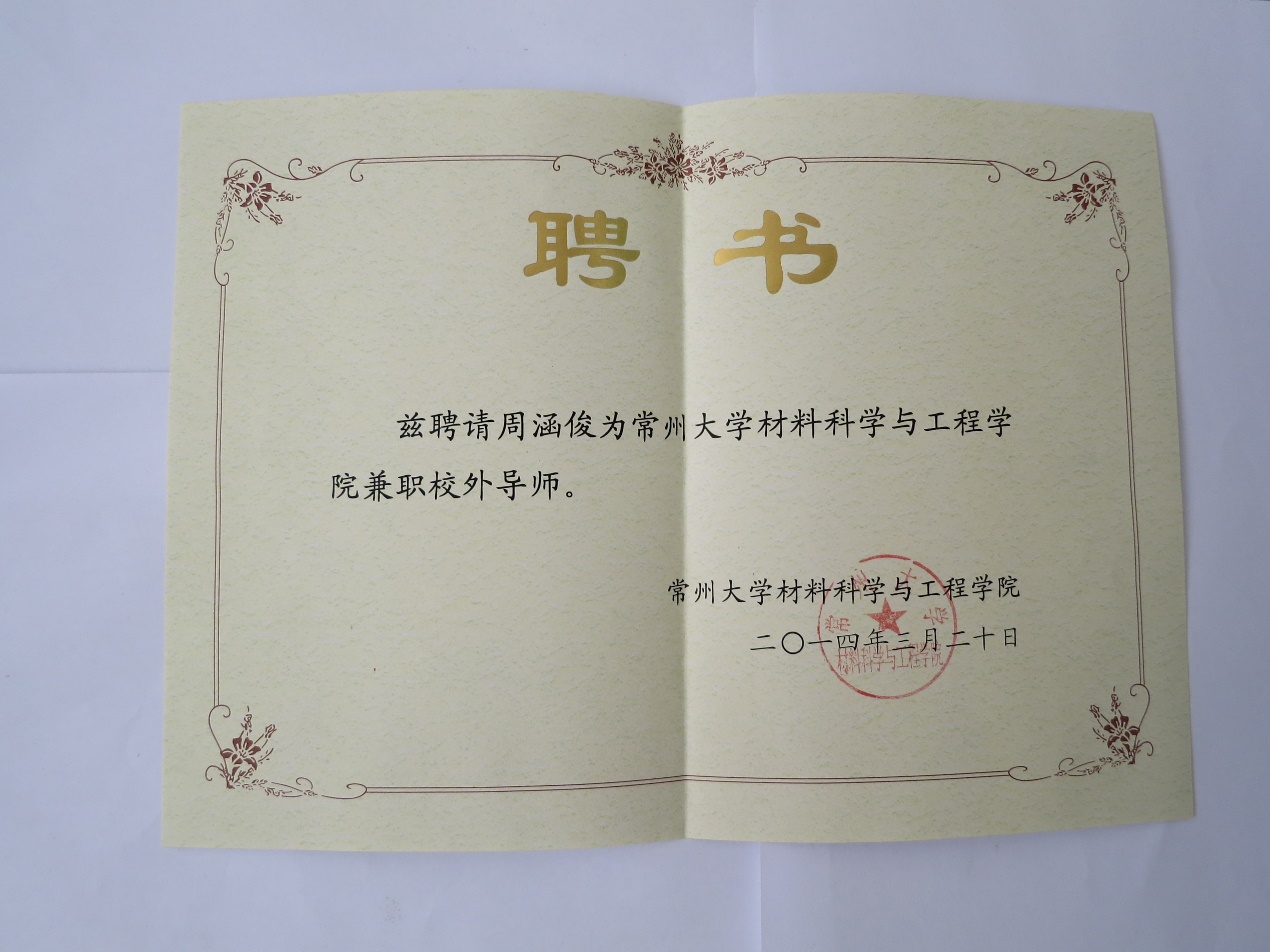 聘书
兹聘请周涵俊为常州大学材料科学与工程学
院兼职校外导师。
常州大学材料科学与工程学院
二〇一四年三月二十日
常州大学
材料科学与工程学院